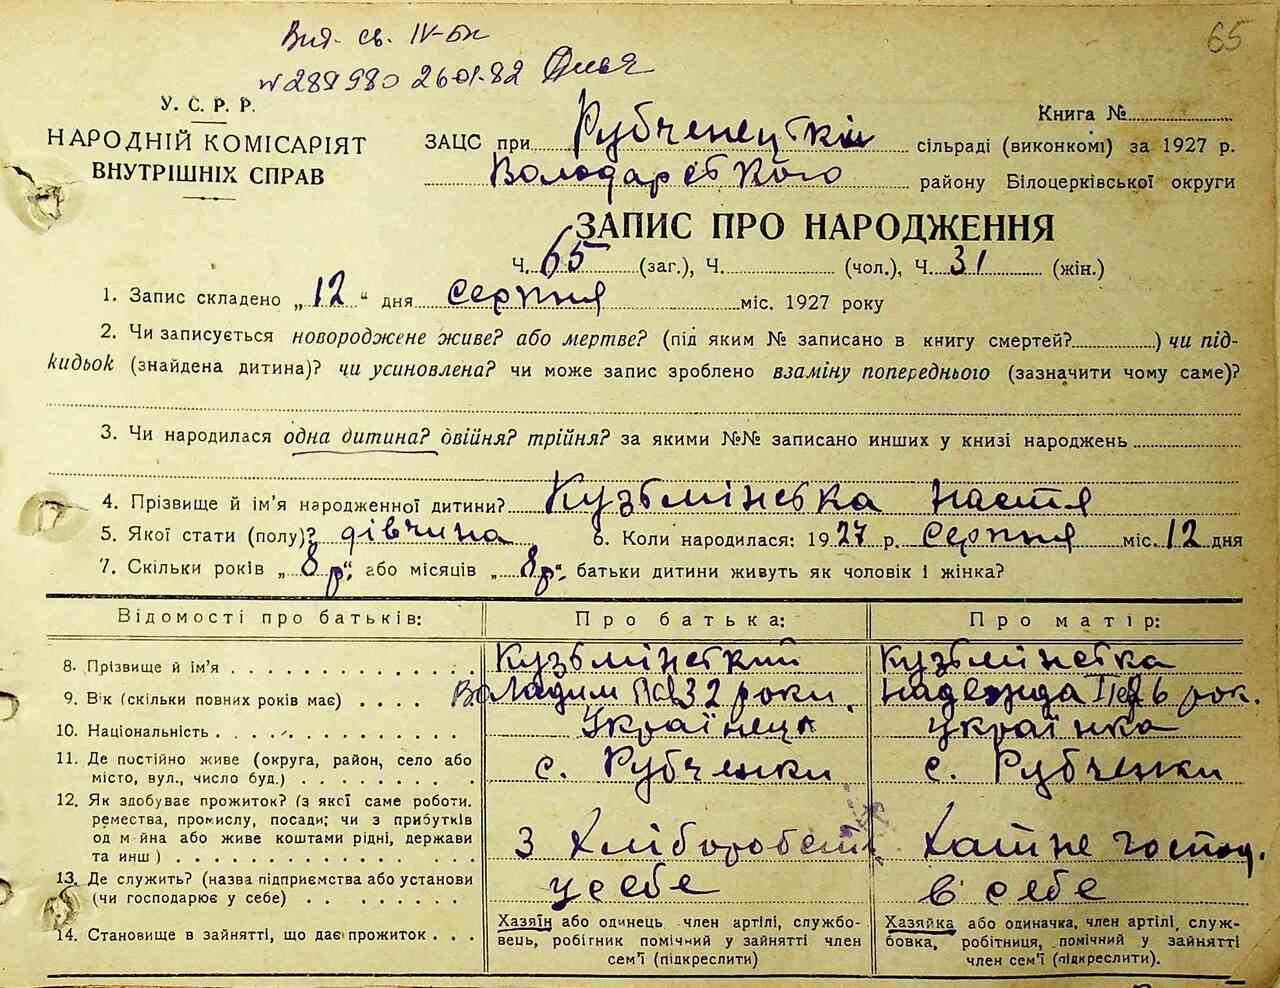 Вид. св. IV-БК
65
№ 289980 26.01.82
У. С. Р. Р.
НАРОДНІЙ КОМІСАРІЯТ
ВНУТРІШНІХ СПРАВ
Книга №
ЗАЦС при Рубченецькій сільраді (виконкомі) за 1927 р.
Володарського району Білоцерківської округи
ЗАПИС ПРО НАРОДЖЕННЯ
Ч. 65 (заг.), Ч. (чол.), Ч. 31 (жін.)
1. Запис складено „12“ дня серпня міс. 1927 року
2. Чи записується новороджене живе? або мертве? (під яким № записано в книгу смертей? ) чи під-
кидьок (знайдена дитина)? чи усиновлена? чи може запис зроблено взаміну попереднього (зазначити чому саме)?
3. Чи народилася одна дитина? двійня? трійня? за якими №№ записано инших у книзі народжень
4. Прізвище й ім'я народженної дитини? Кузьмінська Настя
5. Якої стати (полу)? дівчина 6. Коли народилася: 1927 р. серпня міс. 12 дня
7. Скільки років „8 р“, або місяців „8р“, батьки дитини живуть як чоловік і жінка?
Відомості про батьків: Про батька: Про матір:
8. Прізвище й ім'я Кузьмінський Кузьмінська
9. Вік (скільки повних років має) Володим 32 роки. Надежда 26 рок.
10. Національність Українець українка
11. Де постійно живе (округа, район, село або
місто, вул., число буд.) с. Рубченки с. Рубченки
12. Як здобуває прожиток? (з якєї саме роботи.
ремества, промислу, посади; чи з прибутків
од майна або живе коштами рідні, держави
та инш) З хліборобств Хатнє господ.
13. Де служить? (назва підприємства або установи
(чи господарює у себе) у себе в себе
14. Становище в зайнятті, що дає прожиток
Хазяїн або одинець член артілі, службо-
вець, робігник помічний у зайнятті член
сем'ї (підкреслити)
Хазяйка або одиначка, член артілі, служ-
бовка, робітниця, помічний у зайнятті
член сем'ї (підкреслити).